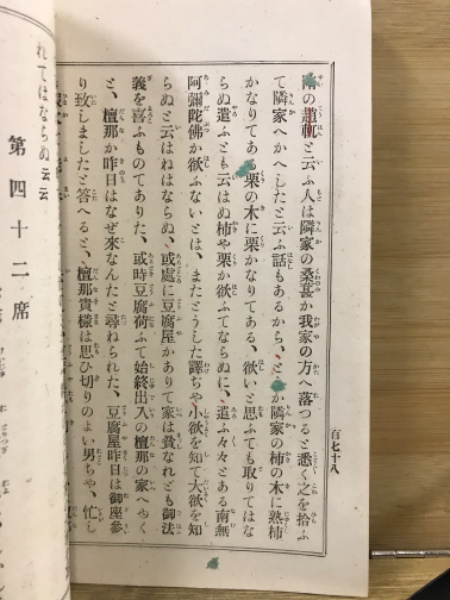 の趙軌と云ふ人は隣家の桑葚か我家の方へ落つると悉く之を拾ふ
て隣家へかへしたと云ふ話もあるから、とか隣家の柿の木に熟柿
かなりてある栗の木に栗かなりてある、欲いと思ふても取りてはな
らぬ遣ふとも云はぬ柿や栗か欲ふてならぬに、遣ふ々々とある南無
阿彌陀佛か欲ふないとは、またとうした譯ぢや小欲を知て大欲を知
らぬと云はねはならぬ、或處に豆腐屋かありて家は貧なれとも御法
義を喜ふものてありた、或時豆腐荷ふて始終出入の檀那の家へゆく
と、檀那か昨日はなぜ來なんたと尋ねられた、豆腐屋昨日は御座參
り致しましたと答へると、檀那貴様は思ひ切りのよい男ちや、忙し
百七十八
れてはならぬ云云
第四十二席